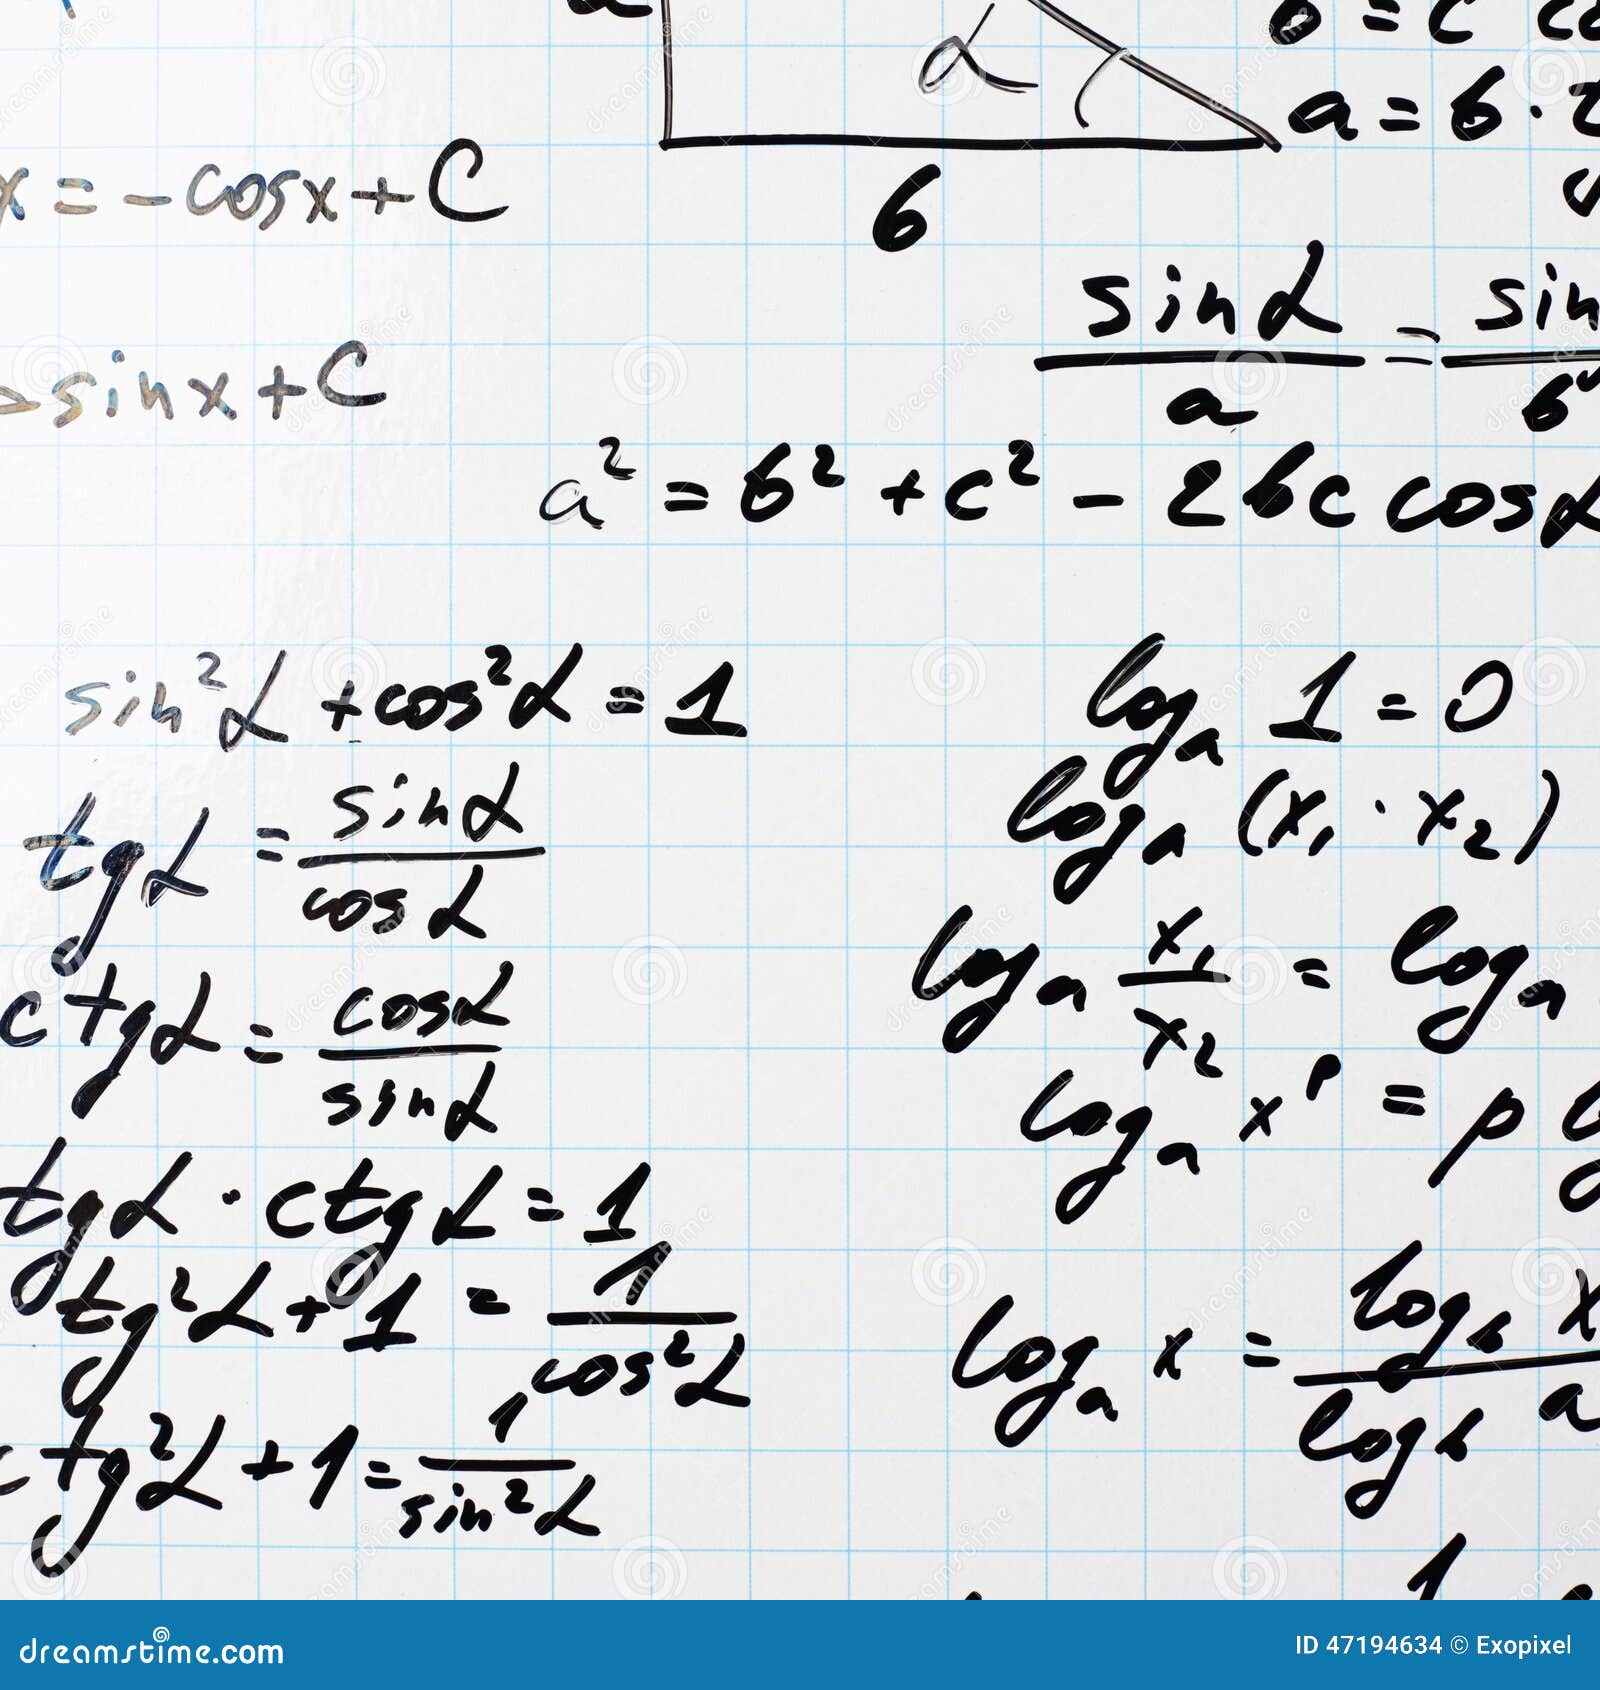 a
b = c co
α
a = b · t
b
x = -cosx + C
sinα/a = sin/b
sinx + C
a² = b² + c² - 2bc cosα
sin²α + cos²α = 1
tgα = sinα/cosα
ctgα = cosα/sinα
tgα · ctgα = 1
tg²α + 1 = 1/cos²α
ctg²α + 1 = 1/sin²α
logₐ 1 = 0
logₐ (x₁ · x₂)
logₐ x₁/x₂ = logₐ
logₐ xᵖ = p
logₐ x = log_b x/log_b a
1
dreamstime.com
ID 47194634 © Exopixel